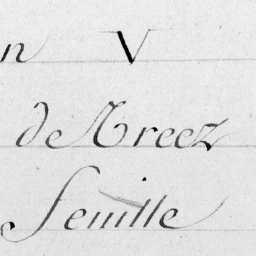 n V
de Treez
feuille